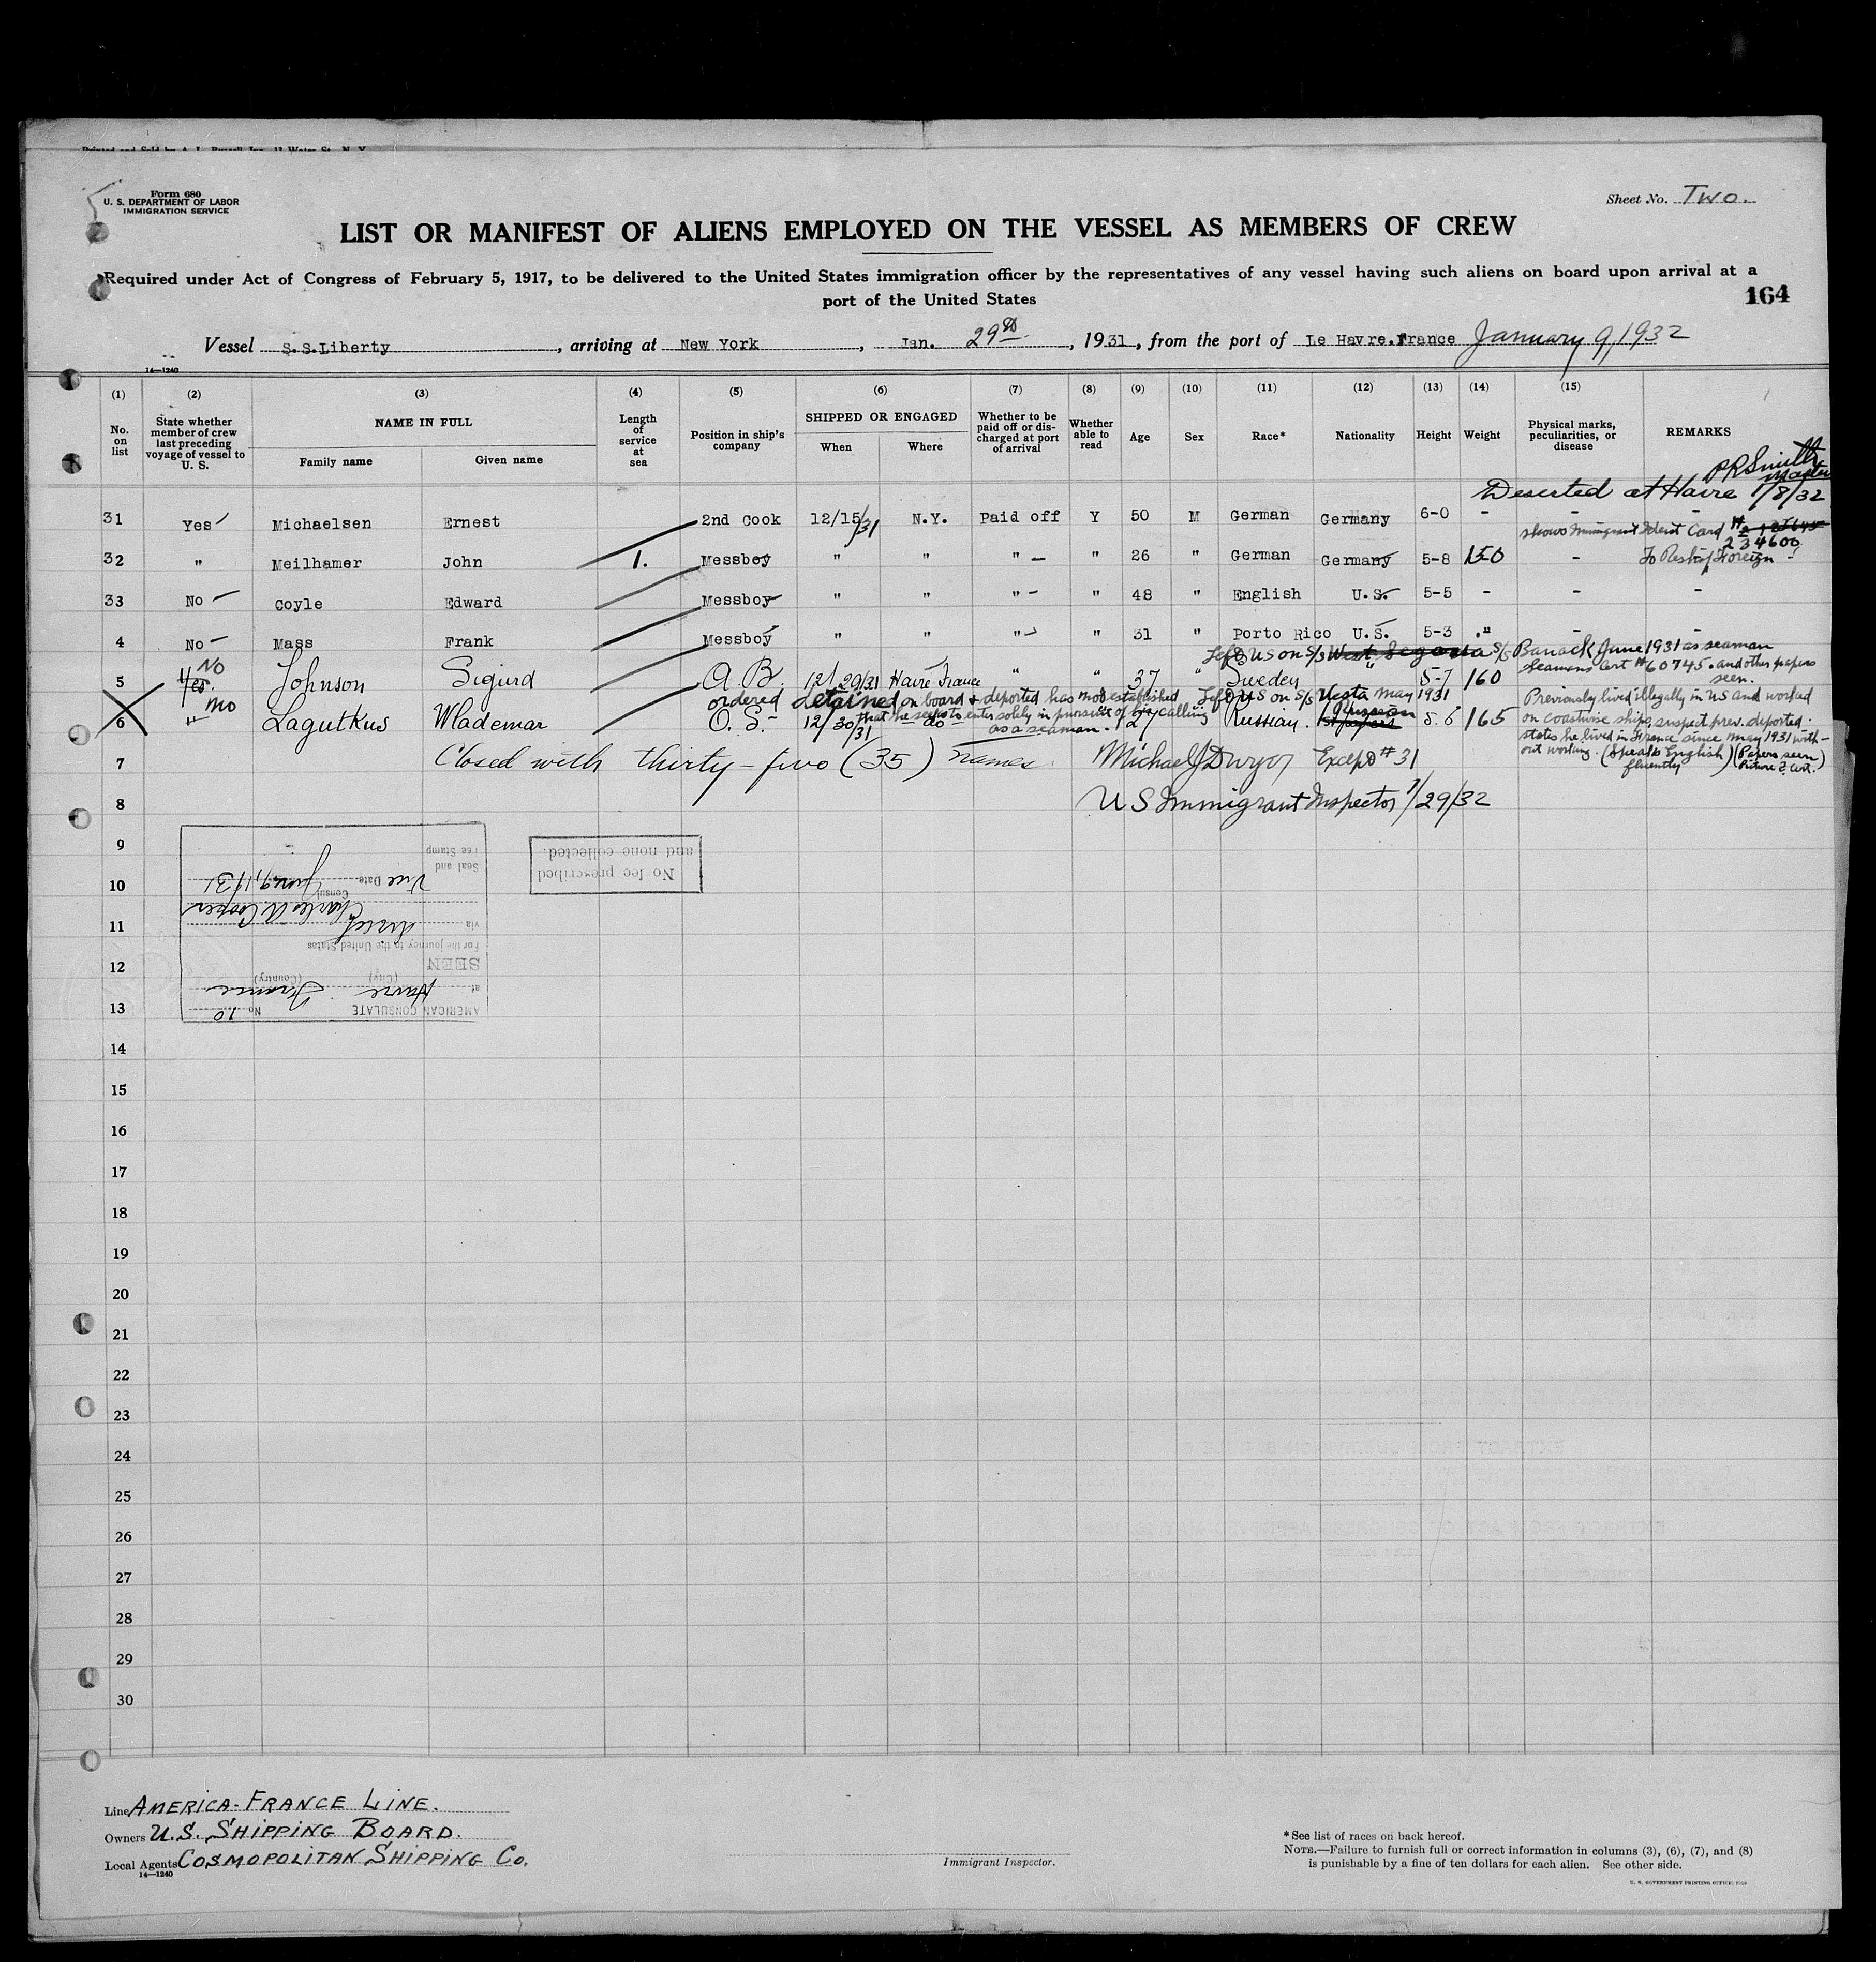 Form 680
U. S. DEPARTMENT OF LABOR
IMMIGRATION SERVICE
Sheet No. Two.
LIST OR MANIFEST OF ALIENS EMPLOYED ON THE VESSEL AS MEMBERS OF CREW
Required under Act of Congress of February 5, 1917, to be delivered to the United States immigration officer by the representatives of any vessel having such aliens on board upon arrival at a
port of the United States
164
Vessel S.S.Liberty, arriving at New York, Jan. 29th, 1931, from the port of Le Havre.France January 9, 1932
14—1240
(1) (2) (3) (4) (5) (6) (7) (8) (9) (10) (11) (12) (13) (14) (15)
No. on list
State whether member of crew last preceding voyage of vessel to U. S.
NAME IN FULL
Family name Given name
Length of service at sea
Position in ship's company
SHIPPED OR ENGAGED
When Where
Whether to be paid off or discharged at port of arrival
Whether able to read
Age
Sex
Race*
Nationality
Height
Weight
Physical marks, peculiarities, or disease
REMARKS
P R Smith Master
Deserted at Havre 1/8/32
31 Yes Michaelsen Ernest 2nd Cook 12/15/31 N.Y. Paid off Y 50 M German Germany 6-0 - - -
shows Immigrant Ident Card # 234600
32 " Meilhamer John 1. Messboy " " " — " 26 " German Germany 5-8 150 - To Reship Foreign
33 No Coyle Edward Messboy " " " - " 48 " English U.S. 5-5 - - -
4 No Mass Frank Messboy " " " " 31 " Porto Rico U.S. 5-3 " - -
Left US on S/S West Segovia S/S Banack June 1931 as seaman
Seamens Cert # 60745. and other papers seen.
5 Yes. No Johnson Sigurd A.B. 12/29/31 Havre France " " 37 " Sweden " 5-7 160
ordered detained on board & deported has not established
that he seeks to enter solely in pursuit of his calling
as a seaman.
Left US on S/S Vesta May 1931
6 " No Lagutkus Wlademar O.S. 12/30/31 do 27 Russian. Russian 5.6 165
Previously lived illegally in US and worked
on coastwise ships, suspect prev. deported.
states he lived in France since May 1931 with-
out working. (Speaks English fluently) (Papers seen Picture & Cert.)
7 Closed with thirty-five (35) names Michael J Dwyer Except # 31
8 US Immigrant Inspector 1/29/32
9
10
11
12
13
14
15
16
17
18
19
20
21
22
23
24
25
26
27
28
29
30
No fee prescribed
and none collected.
AMERICAN CONSULATE No 10
at Havre France
(City) (Country)
SEEN
For the journey to the United States
via direct
Charles A. Cooper
Vice Consul
Date
Seal and
Fee Stamp
Line AMERICA-FRANCE LINE.
Owners U.S. SHIPPING BOARD.
Local Agents COSMOPOLITAN SHIPPING Co.
14—1240
Immigrant Inspector.
*See list of races on back hereof.
NOTE.—Failure to furnish full or correct information in columns (3), (6), (7), and (8)
is punishable by a fine of ten dollars for each alien. See other side.